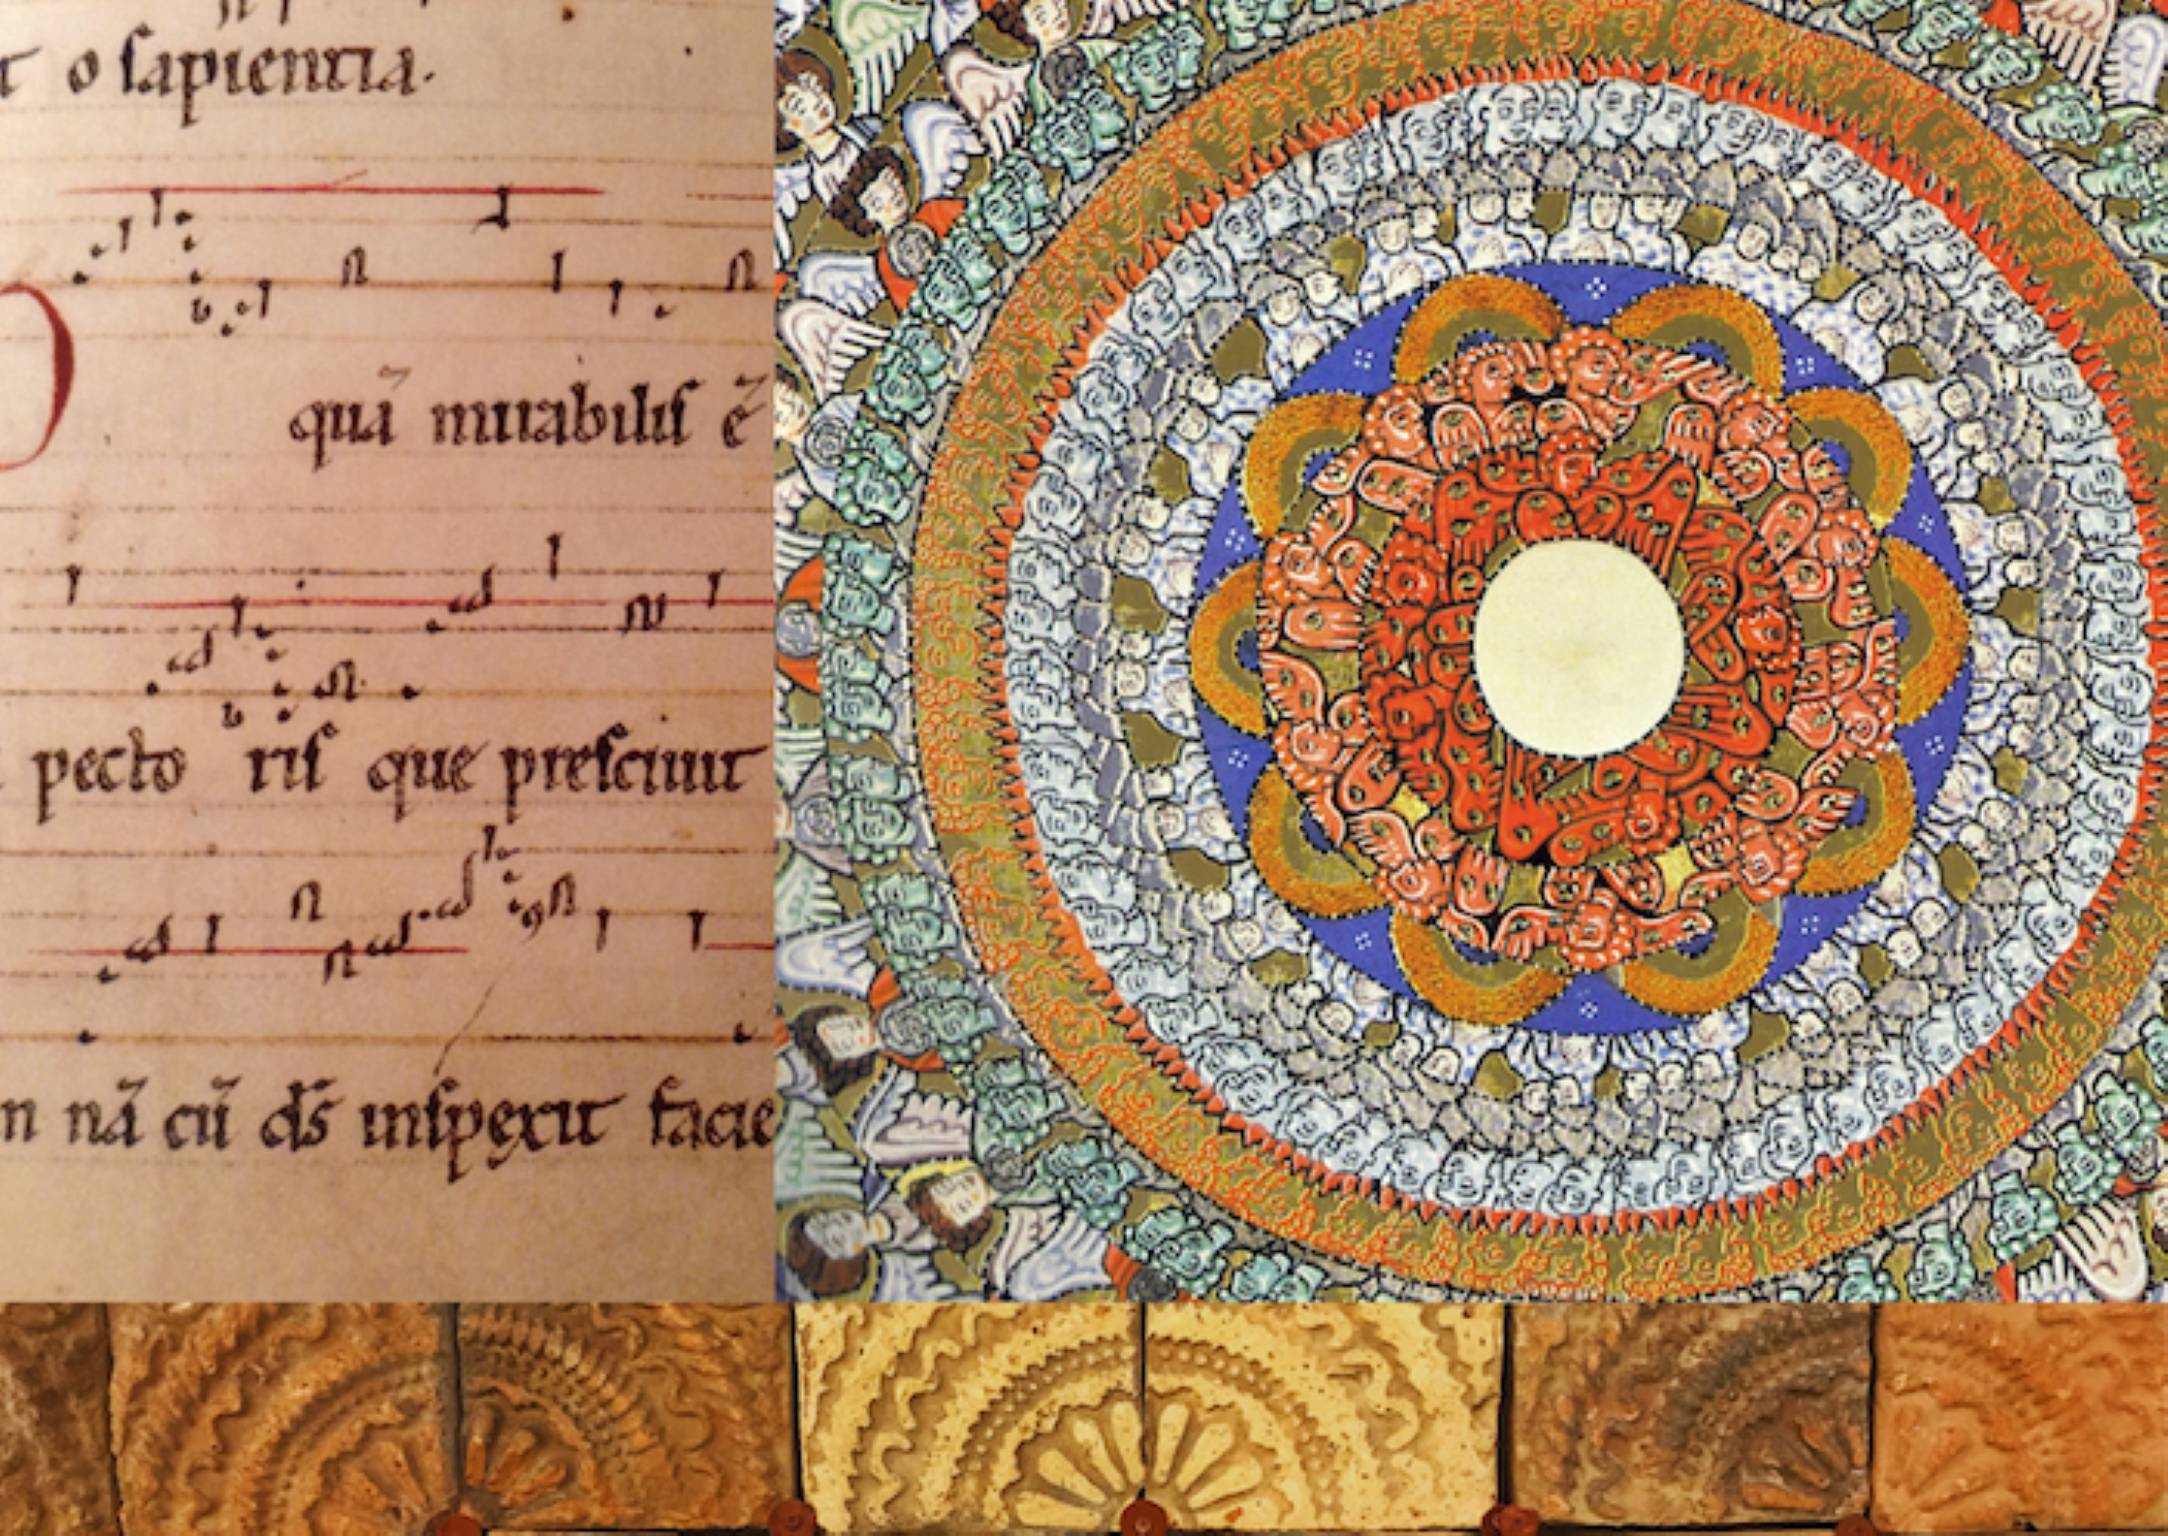 o sapientia.
quā mirabilis ē
pectoris que presciuit
nā cū ds̄ inspexit facie